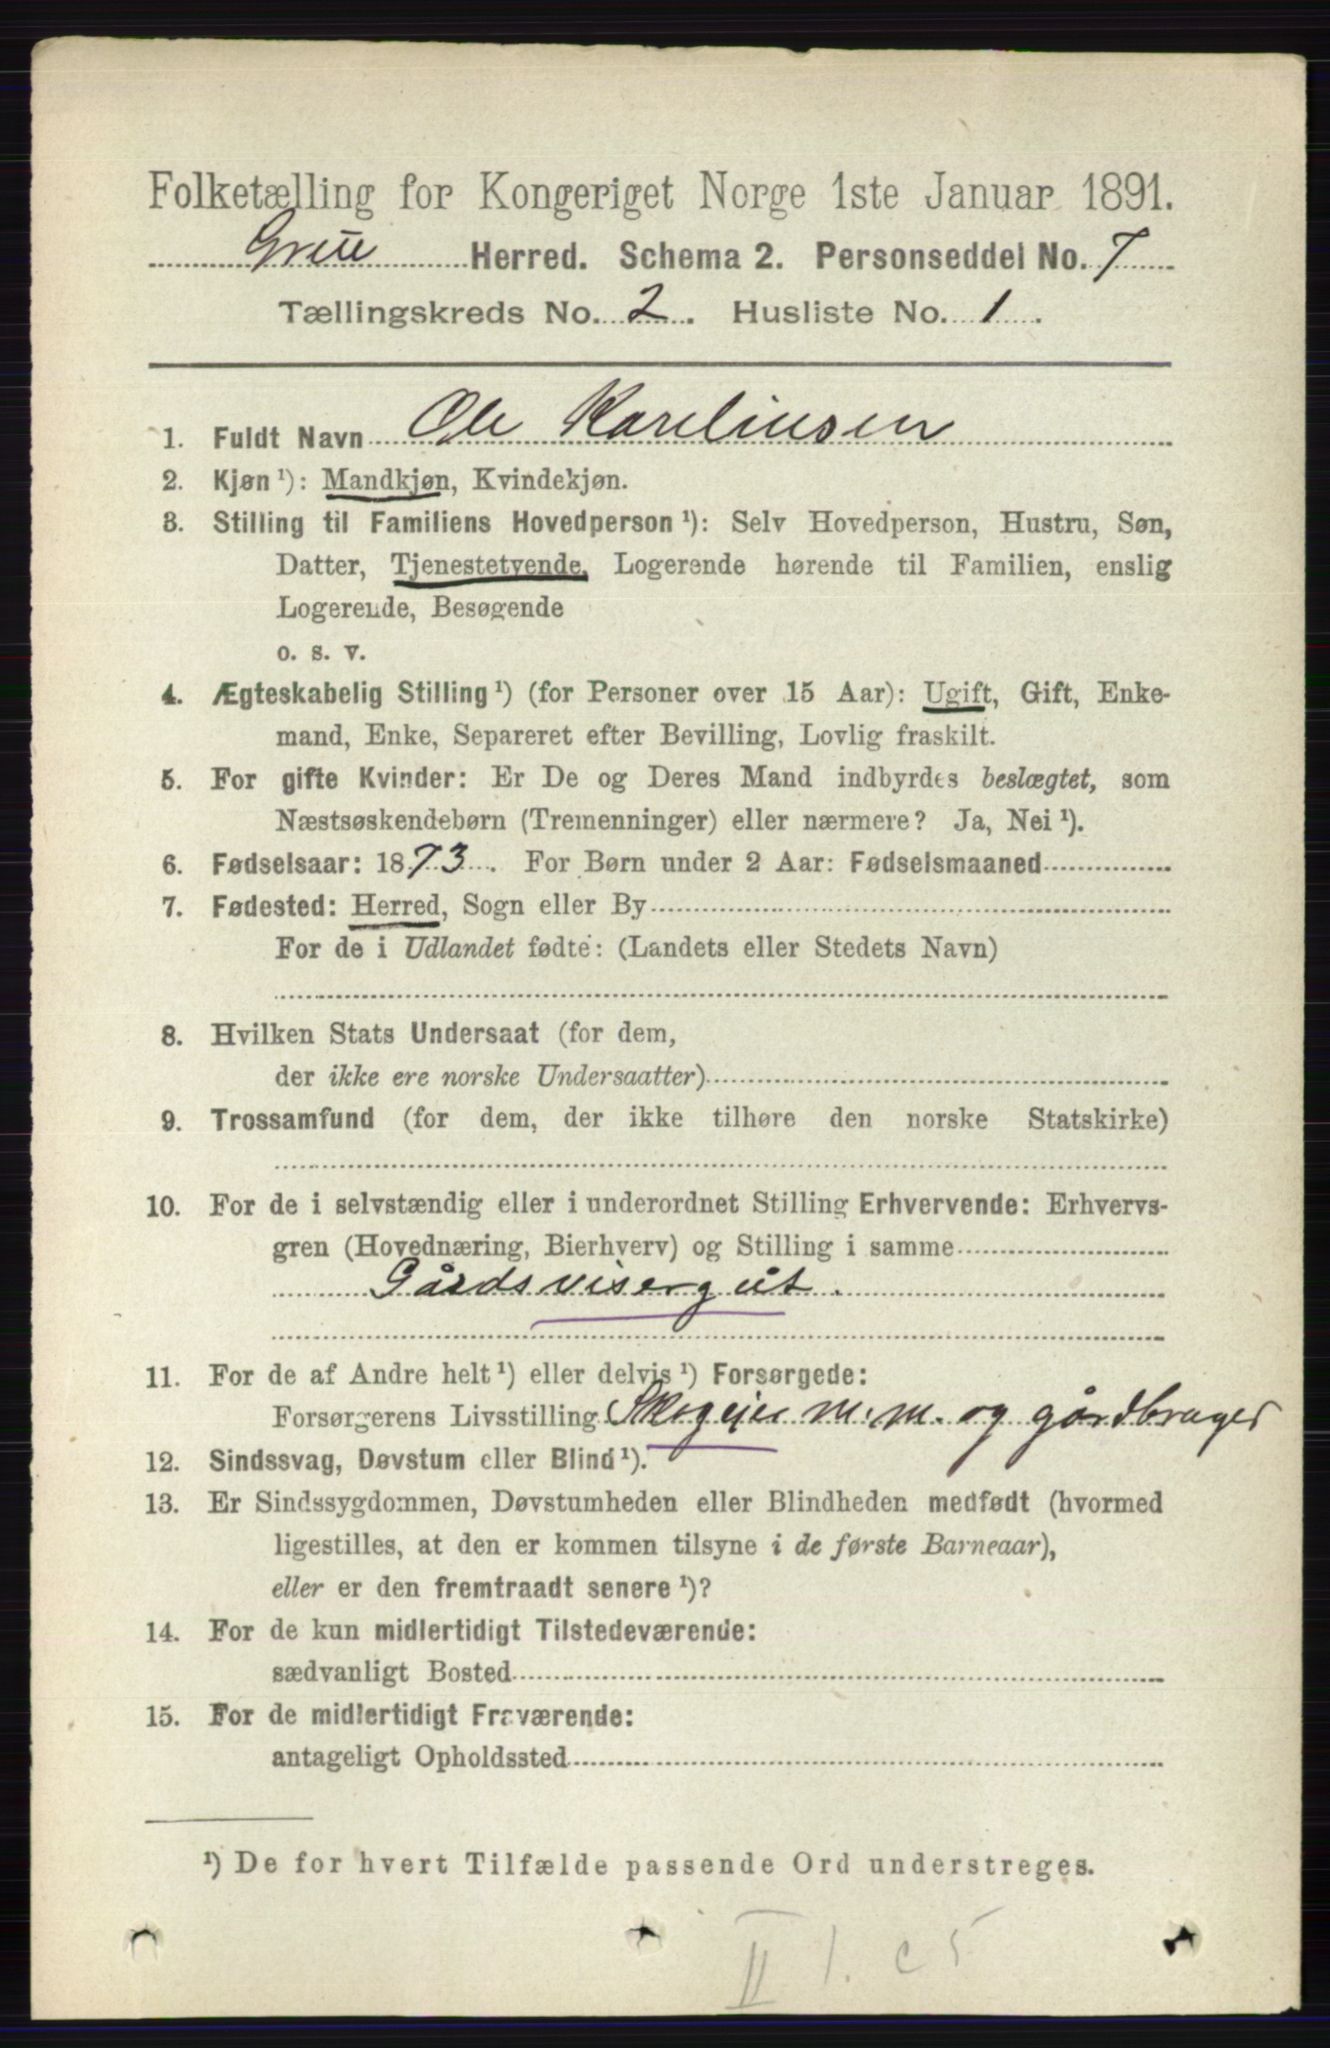 Folketælling for Kongeriget Norge 1ste Januar 1891.
Grue Herred. Schema 2. Personseddel No. 7
Tællingskreds No. 2. Husliste No. 1.
1. Fuldt Navn Ole Kareliusen
2. Kjøn ¹): Mandkjøn, Kvindekjøn.
3. Stilling til Familiens Hovedperson ¹): Selv Hovedperson, Hustru, Søn,
Datter, Tjenestetyende, Logerende hørende til Familien, enslig
Logerende, Besøgende
o. s. v.
4. Ægteskabelig Stilling ¹) (for Personer over 15 Aar): Ugift, Gift, Enke-
mand, Enke, Separeret efter Bevilling, Lovlig fraskilt.
5. For gifte Kvinder: Er De og Deres Mand indbyrdes beslægtet, som
Næstsøskendebørn (Tremenninger) eller nærmere? Ja, Nei ¹).
6. Fødselsaar: 1873. For Børn under 2 Aar: Fødselsmaaned
7. Fødested: Herred, Sogn eller By
For de i Udlandet fødte: (Landets eller Stedets Navn)
8. Hvilken Stats Undersaat (for dem,
der ikke ere norske Undersaatter)
9. Trossamfund (for dem, der ikke tilhøre den norske Statskirke)
10. For de i selvstændig eller i underordnet Stilling Erhvervende: Erhvervs-
gren (Hovednæring, Bierhverv) og Stilling i samme
Gårdsvisergut.
11. For de af Andre helt ¹) eller delvis ¹) Forsørgede:
Forsørgerens Livsstilling Skogeier m. m. og gårdbruger
12. Sindssvag, Døvstum eller Blind ¹).
13. Er Sindssygdommen, Døvstumheden eller Blindheden medfødt (hvormed
ligestilles, at den er kommen tilsyne i de første Barneaar),
eller er den fremtraadt senere ¹)?
14. For de kun midlertidigt Tilstedeværende:
sædvanligt Bosted
15. For de midlertidigt Fraværende:
antageligt Opholdssted
¹) De for hvert Tilfælde passende Ord understreges.
II 1. c 5